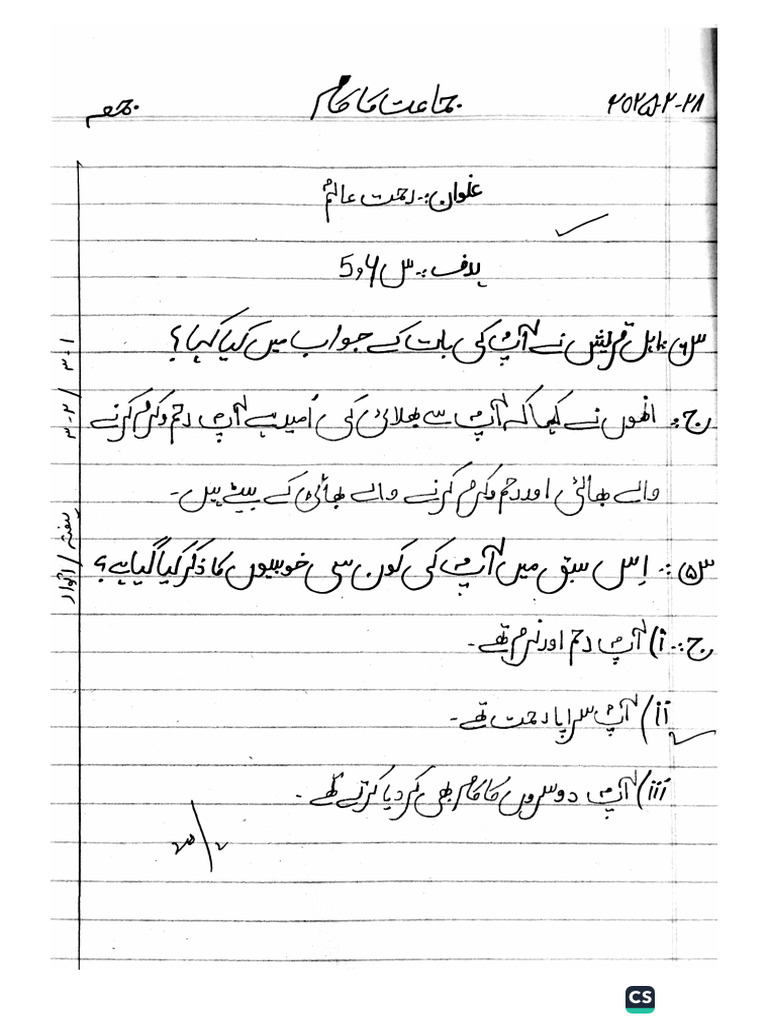 ۲۸-۲-۲۰۲۵ جماعت کا کام جمعہ
عنوان:۔ رحمت عالمؐ
ہدف:۔ س ۴ و 5
اہل قریش نے آپؐ کی بات کے جواب میں کیا کہا؟
ج:۔ انھوں نے کہا کہ آپؐ سے بھلائی کی اُمید ہے آپؐ رحم و کرم کرنے
والے بھائی اور رحم و کرم کرنے والے بھائی کے بیٹے ہیں۔
س۵:۔ اِس سبق میں آپؐ کی کون سی خوبیوں کا ذکر کیا گیا ہے؟
ج:۔ i) آپؐ رحم اور نرم تھے۔
ii) آپؐ سراپا رحمت تھے۔
iii) آپؐ دوسروں کا کام بھی کر دیا کرتے تھے۔
ہفتہ/اتوار ۲-۳ / ۱-۳
CS